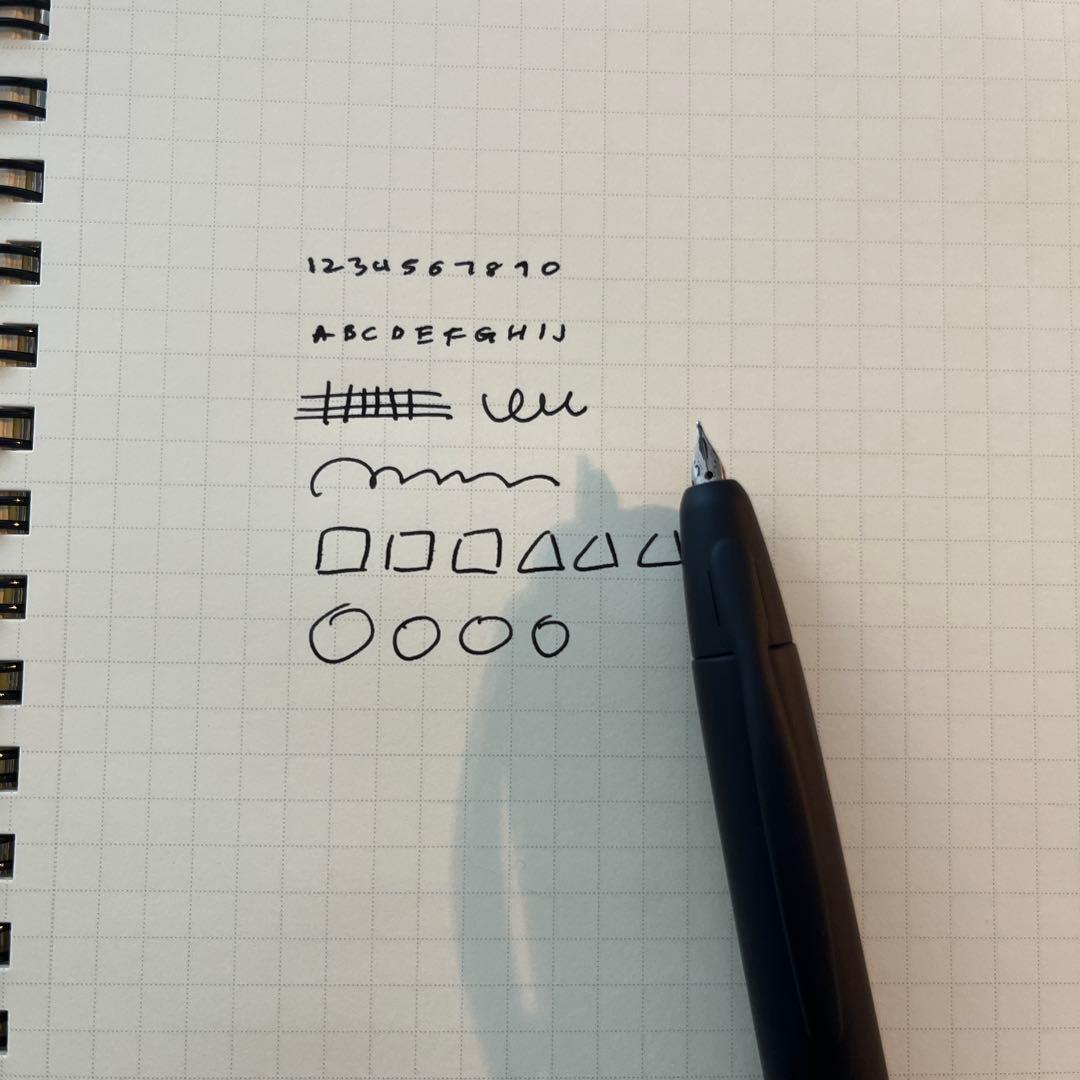 1234567890
ABCDEFGHIJ